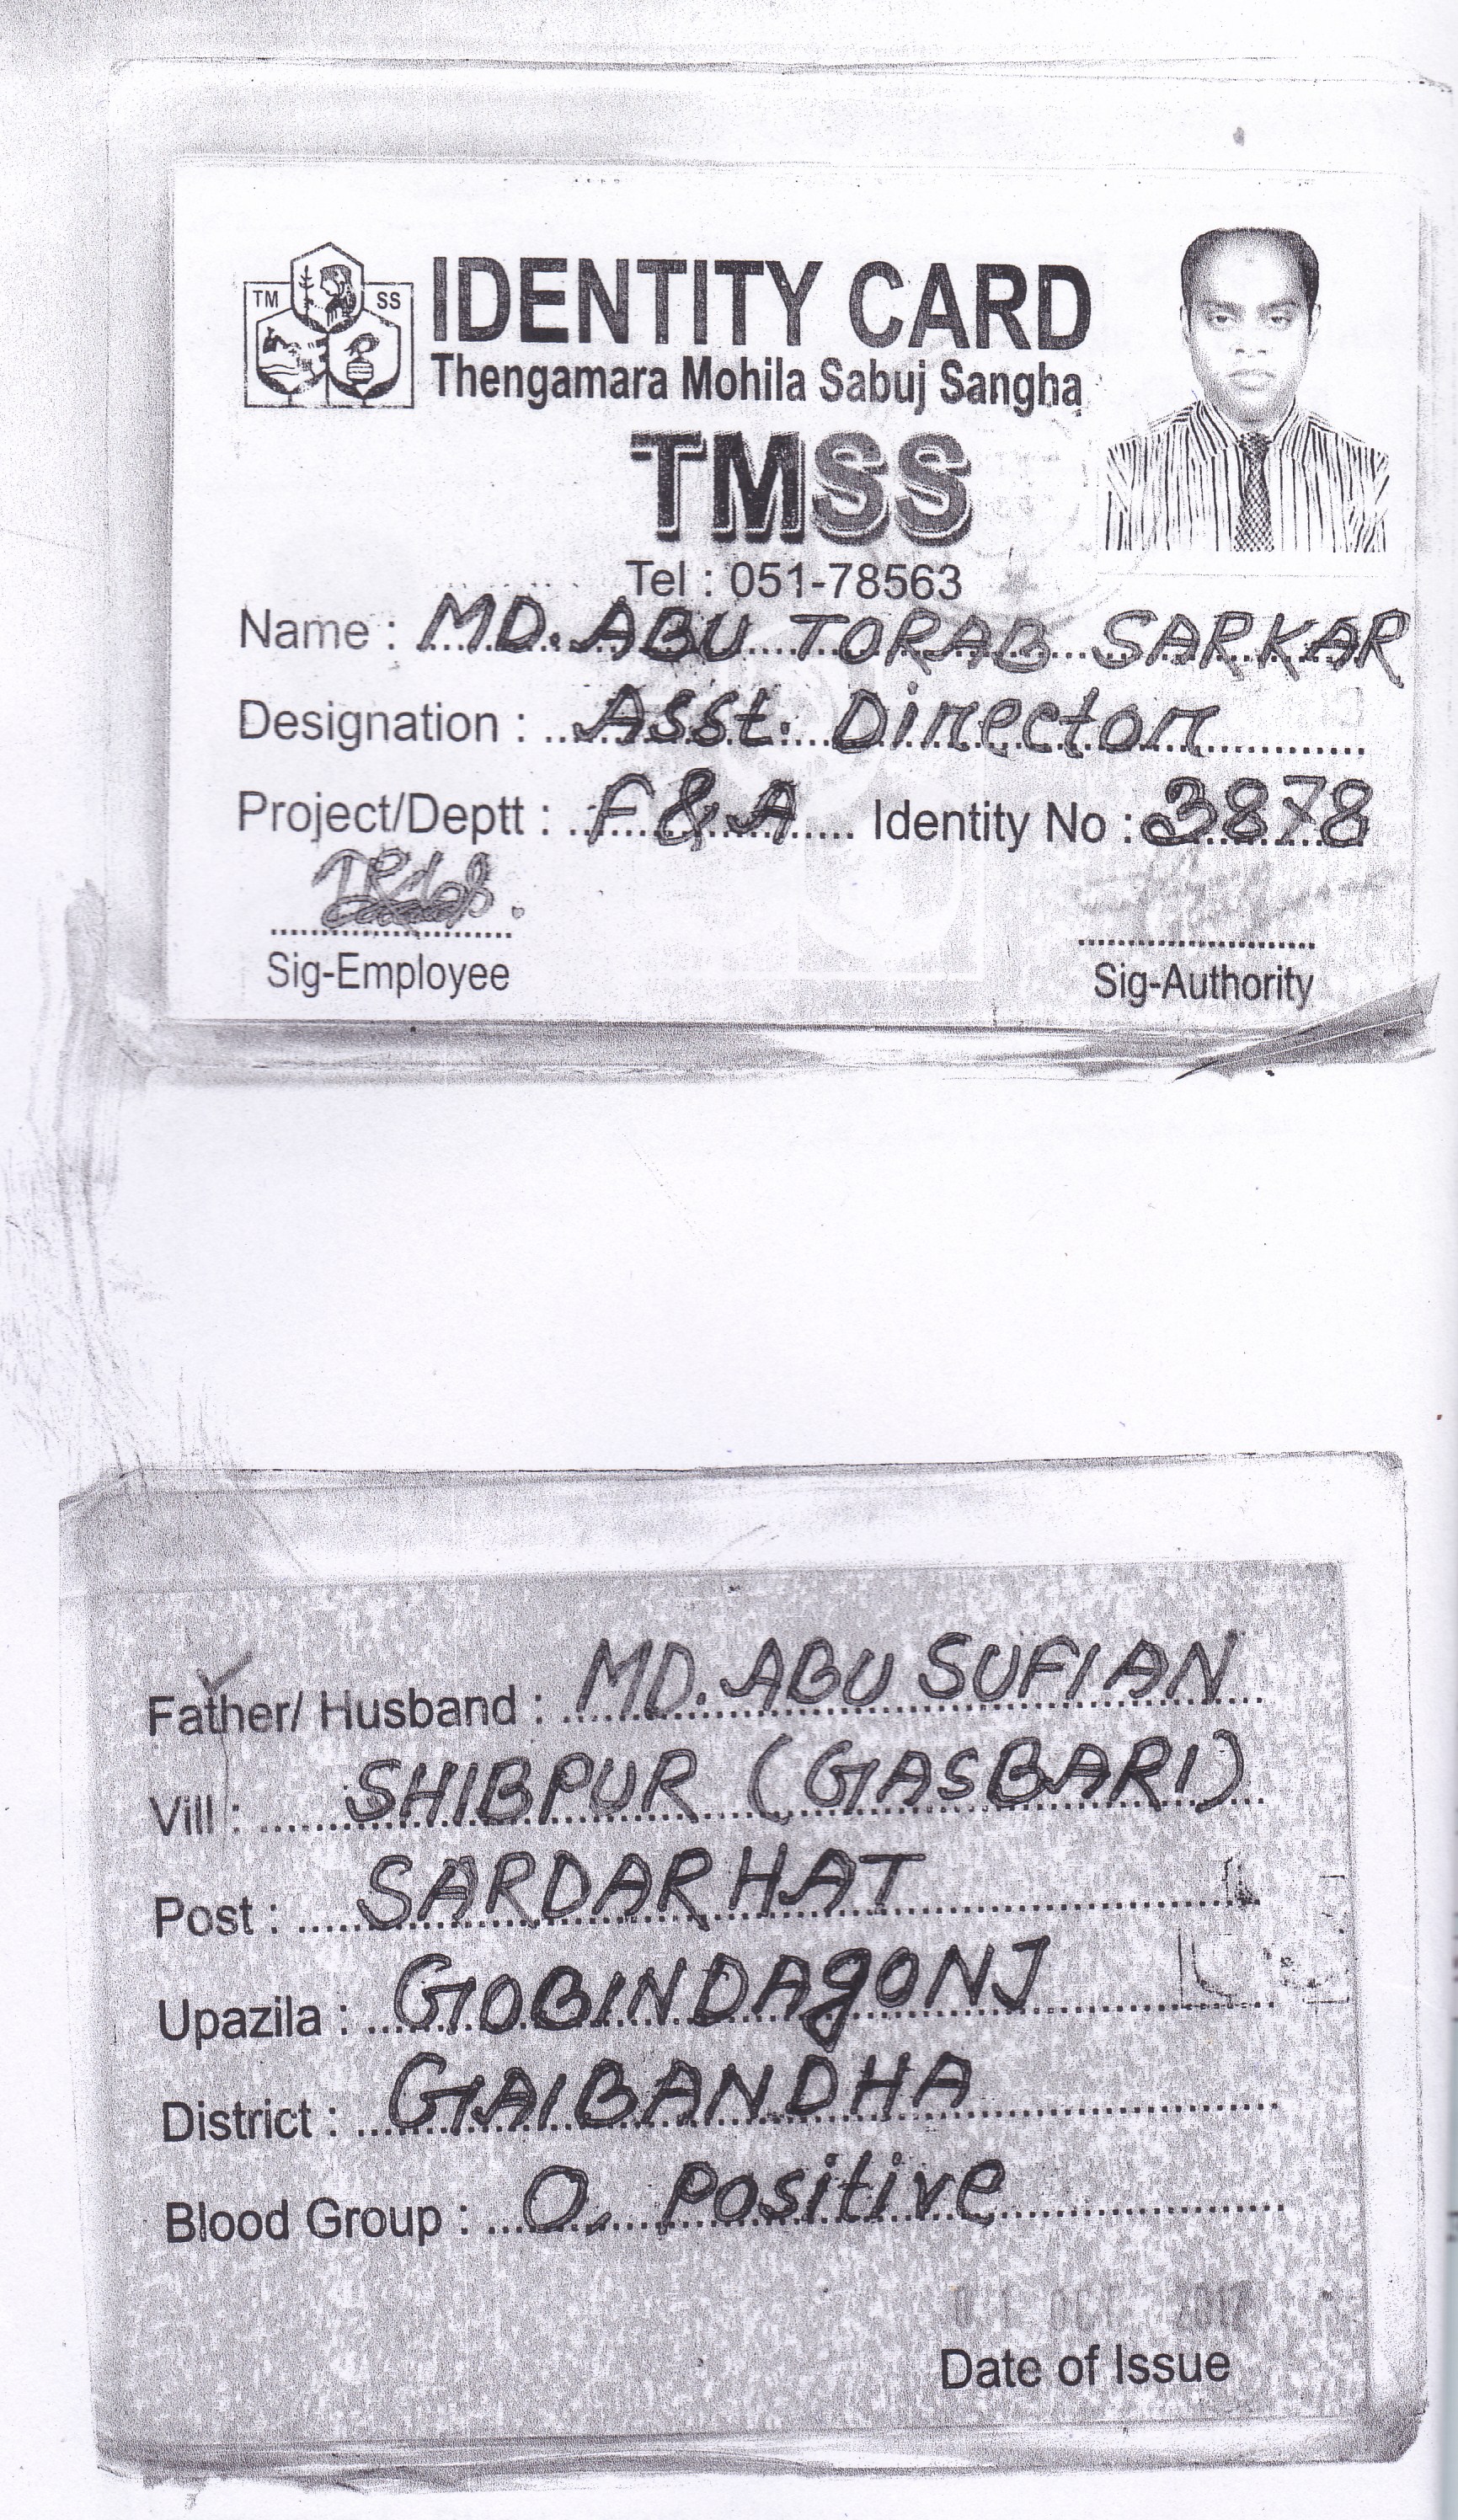 TM SS
IDENTITY CARD
Thengamara Mohila Sabuj Sangha
TMSS
Tel : 051-78563
Name : MD. ABU TORAB SARKAR
Designation : Asst. Director
Project/Deptt : F & A Identity No : 3878
Sig-Employee Sig-Authority
Father/ Husband : MD. ABU SUFIAN
Vill : SHIBPUR (GASBARI)
Post : SARDAR HAT
Upazila : GOBINDAgONJ
District : GAIBANDHA
Blood Group : O, Positive
01 OCT
Date of Issue